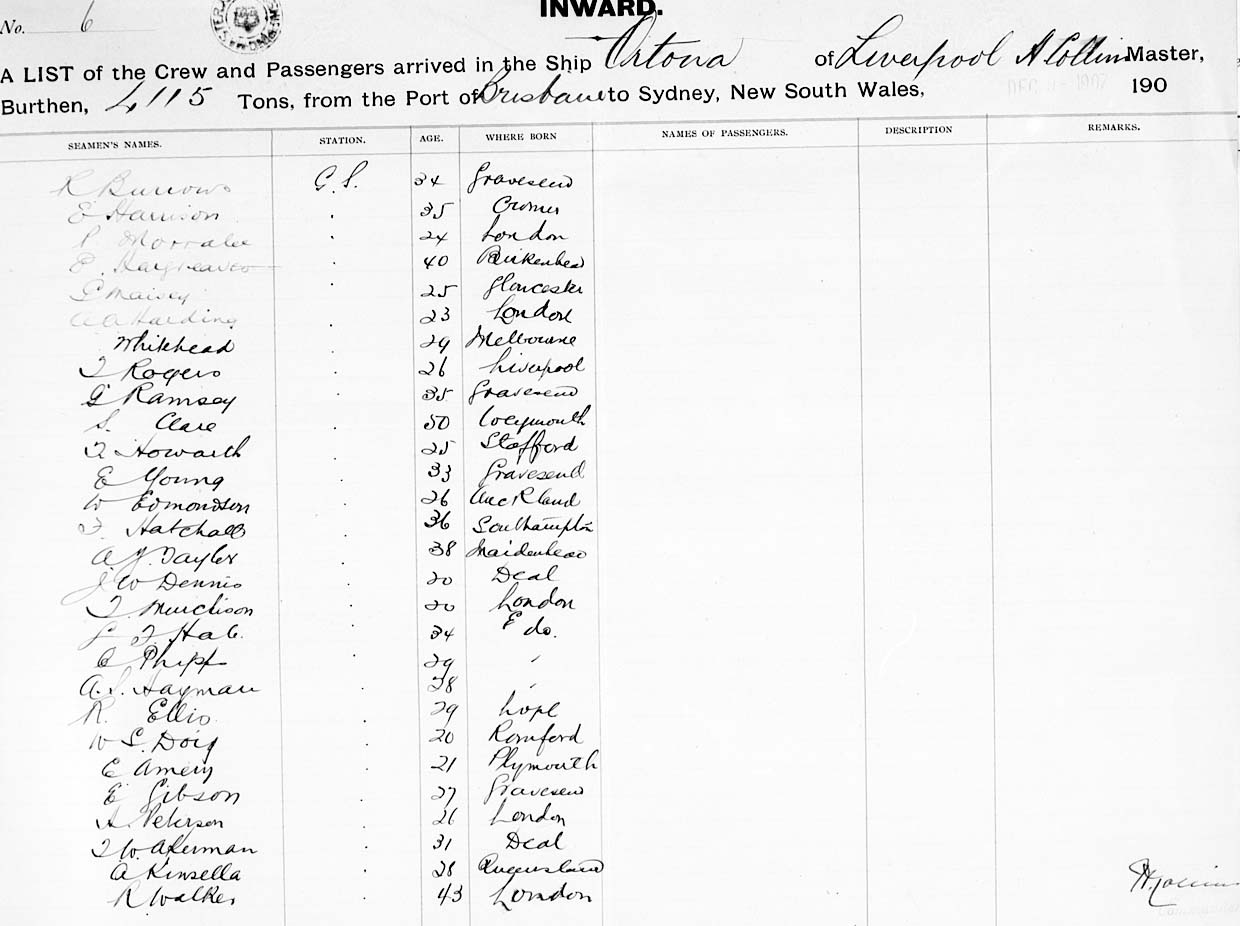 INWARD.
No. 6
A LIST of the Crew and Passengers arrived in the Ship Ortona of Liverpool A Collins Master,
Burthen, 4,115 Tons, from the Port of Brisbane to Sydney, New South Wales, DEC 1902 190
SEAMEN'S NAMES. STATION. AGE. WHERE BORN NAMES OF PASSENGERS. DESCRIPTION REMARKS.
R Burrows G.S. 34 Gravesend
E Harrison . 35 Cromer
P Morralee . 24 London
E. Hargreaves . 40 Birkenhead
G Maisey . 25 Gloucester
A A Harding . 23 London
Whitehead . 29 Melbourne
T Rogers . 26 Liverpool
G Ramsey . 35 Gravesend
S. Clare . 50 Weymouth
T Howarth . 25 Stafford
E Young . 33 Gravesend
W Edmondson . 26 Auckland
F. Hatchall . 36 Southampton
A J. Tayler . 38 Maidenhead
J W Dennis . 20 Deal
T. Murchison . 20 London
F. . 34 E do.
C Phipp . 29 "
A. S. Hayman 28 "
R. Ellis . 29 Hope
W S. Doig . 20 Romford
C Amery . 21 Plymouth
E Gibson . 27 Gravesend
A. Peterson . 26 London
T W. Akerman . 31 Deal
A Kinsella . 28 Queensland
R Walker . 43 London
A Collins
Commander